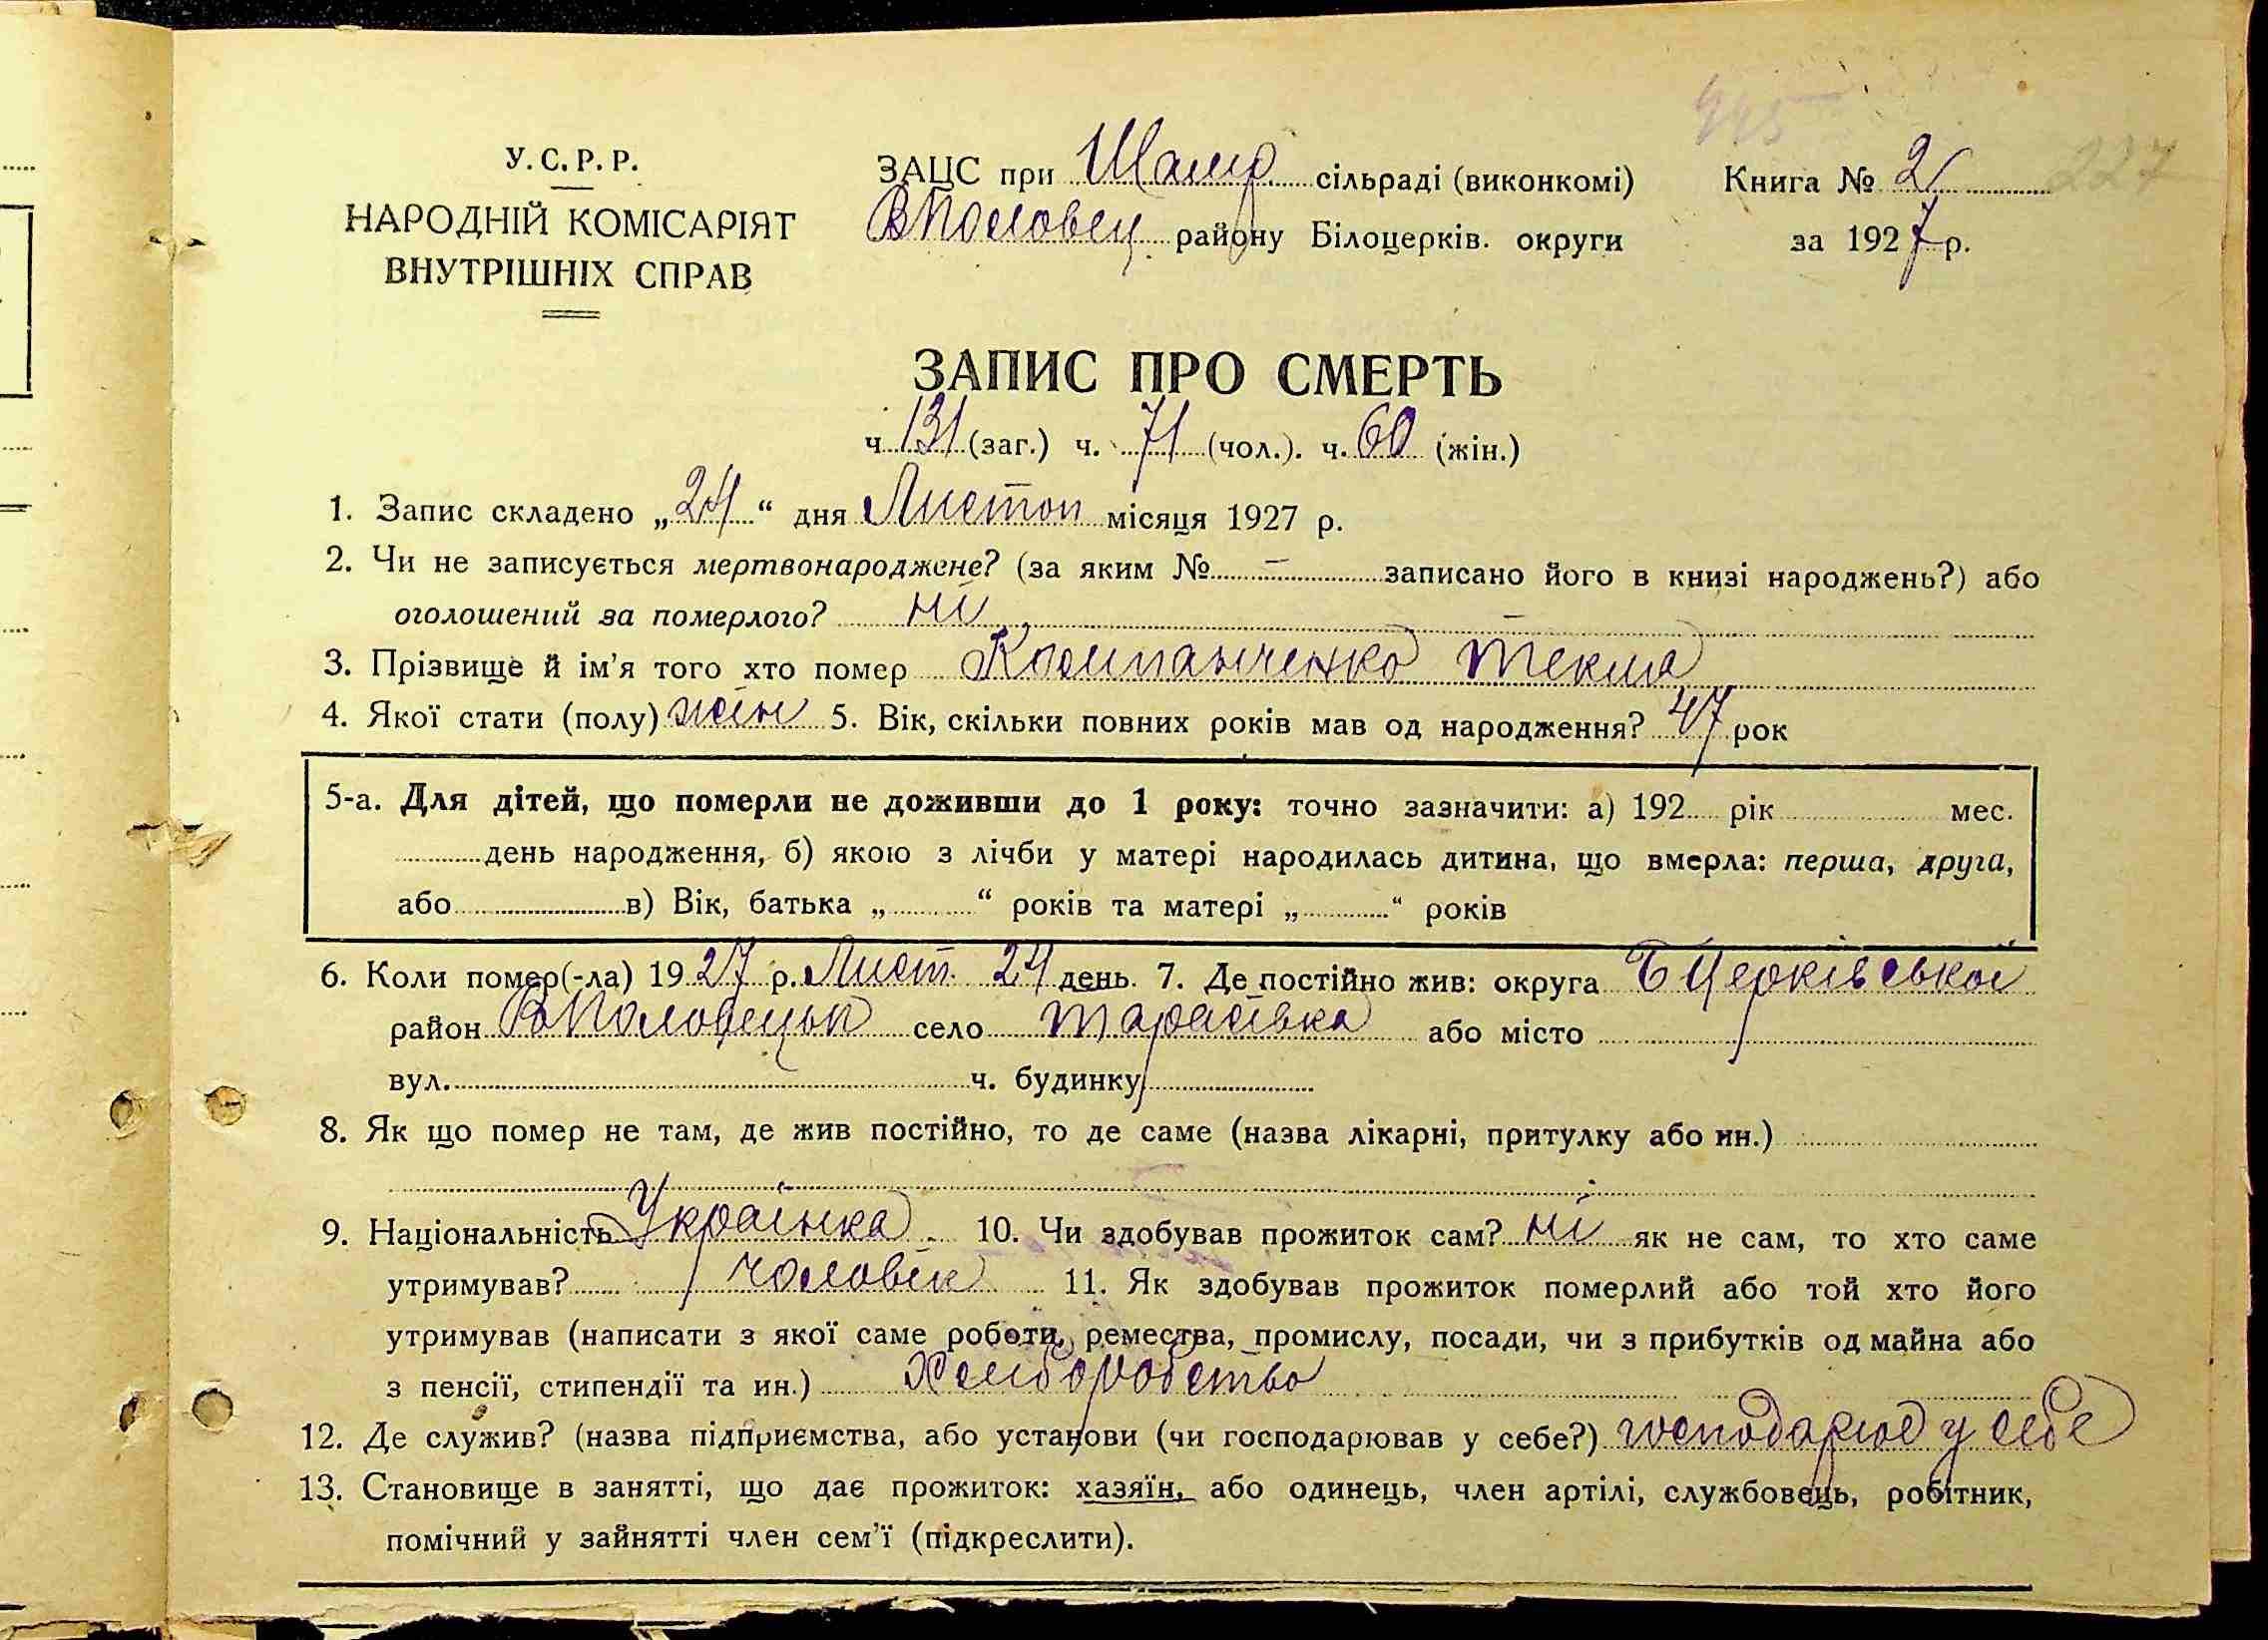 945
У.С.Р.Р.
НАРОДНІЙ КОМІСАРІЯТ
ВНУТРІШНІХ СПРАВ
ЗАЦС при Шамр. сільраді (виконкомі)
ВПоловец. району Білоцерків. округи
Книга № 2 227
за 1927 р.
ЗАПИС ПРО СМЕРТЬ
ч. 131 (заг.) ч. 71 (чол.). ч. 60 (жін.)
1. Запис складено „24“ дня Листоп місяця 1927 р.
2. Чи не записується мертвонароджене? (за яким № — записано його в книзі народжень?) або
оголошений за померлого? ні
3. Прізвище й ім’я того хто помер Компанченко Текла
4. Якої стати (полу) жін 5. Вік, скільки повних років мав од народження? 47 рок
5-а. Для дітей, що померли не доживши до 1 року: точно зазначити: а) 192 рік мес.
день народження, б) якою з лічби у матері народилась дитина, що вмерла: перша, друга,
або в) Вік, батька „ “ років та матері „ “ років
6. Коли помер(-ла) 1927 р. Лист. 24 день. 7. Де постійно жив: округа БЦерківської
район ВПоловецьк село Тарасівка або місто
вул. ч. будинку
8. Як що помер не там, де жив постійно, то де саме (назва лікарні, притулку або ин.)
9. Національність Українка. 10. Чи здобував прожиток сам? ні як не сам, то хто саме
утримував? чоловік 11. Як здобував прожиток померлий або той хто його
утримував (написати з якої саме роботи, ремества, промислу, посади, чи з прибутків од майна або
з пенсії, стипендії та ин.) Хліборобство
12. Де служив? (назва підприємства, або установи (чи господарював у себе?) господарює у себе
13. Становище в занятті, що дає прожиток: хазяїн, або одинець, член артілі, службовець, робітник,
помічний у зайнятті член сем’ї (підкреслити).